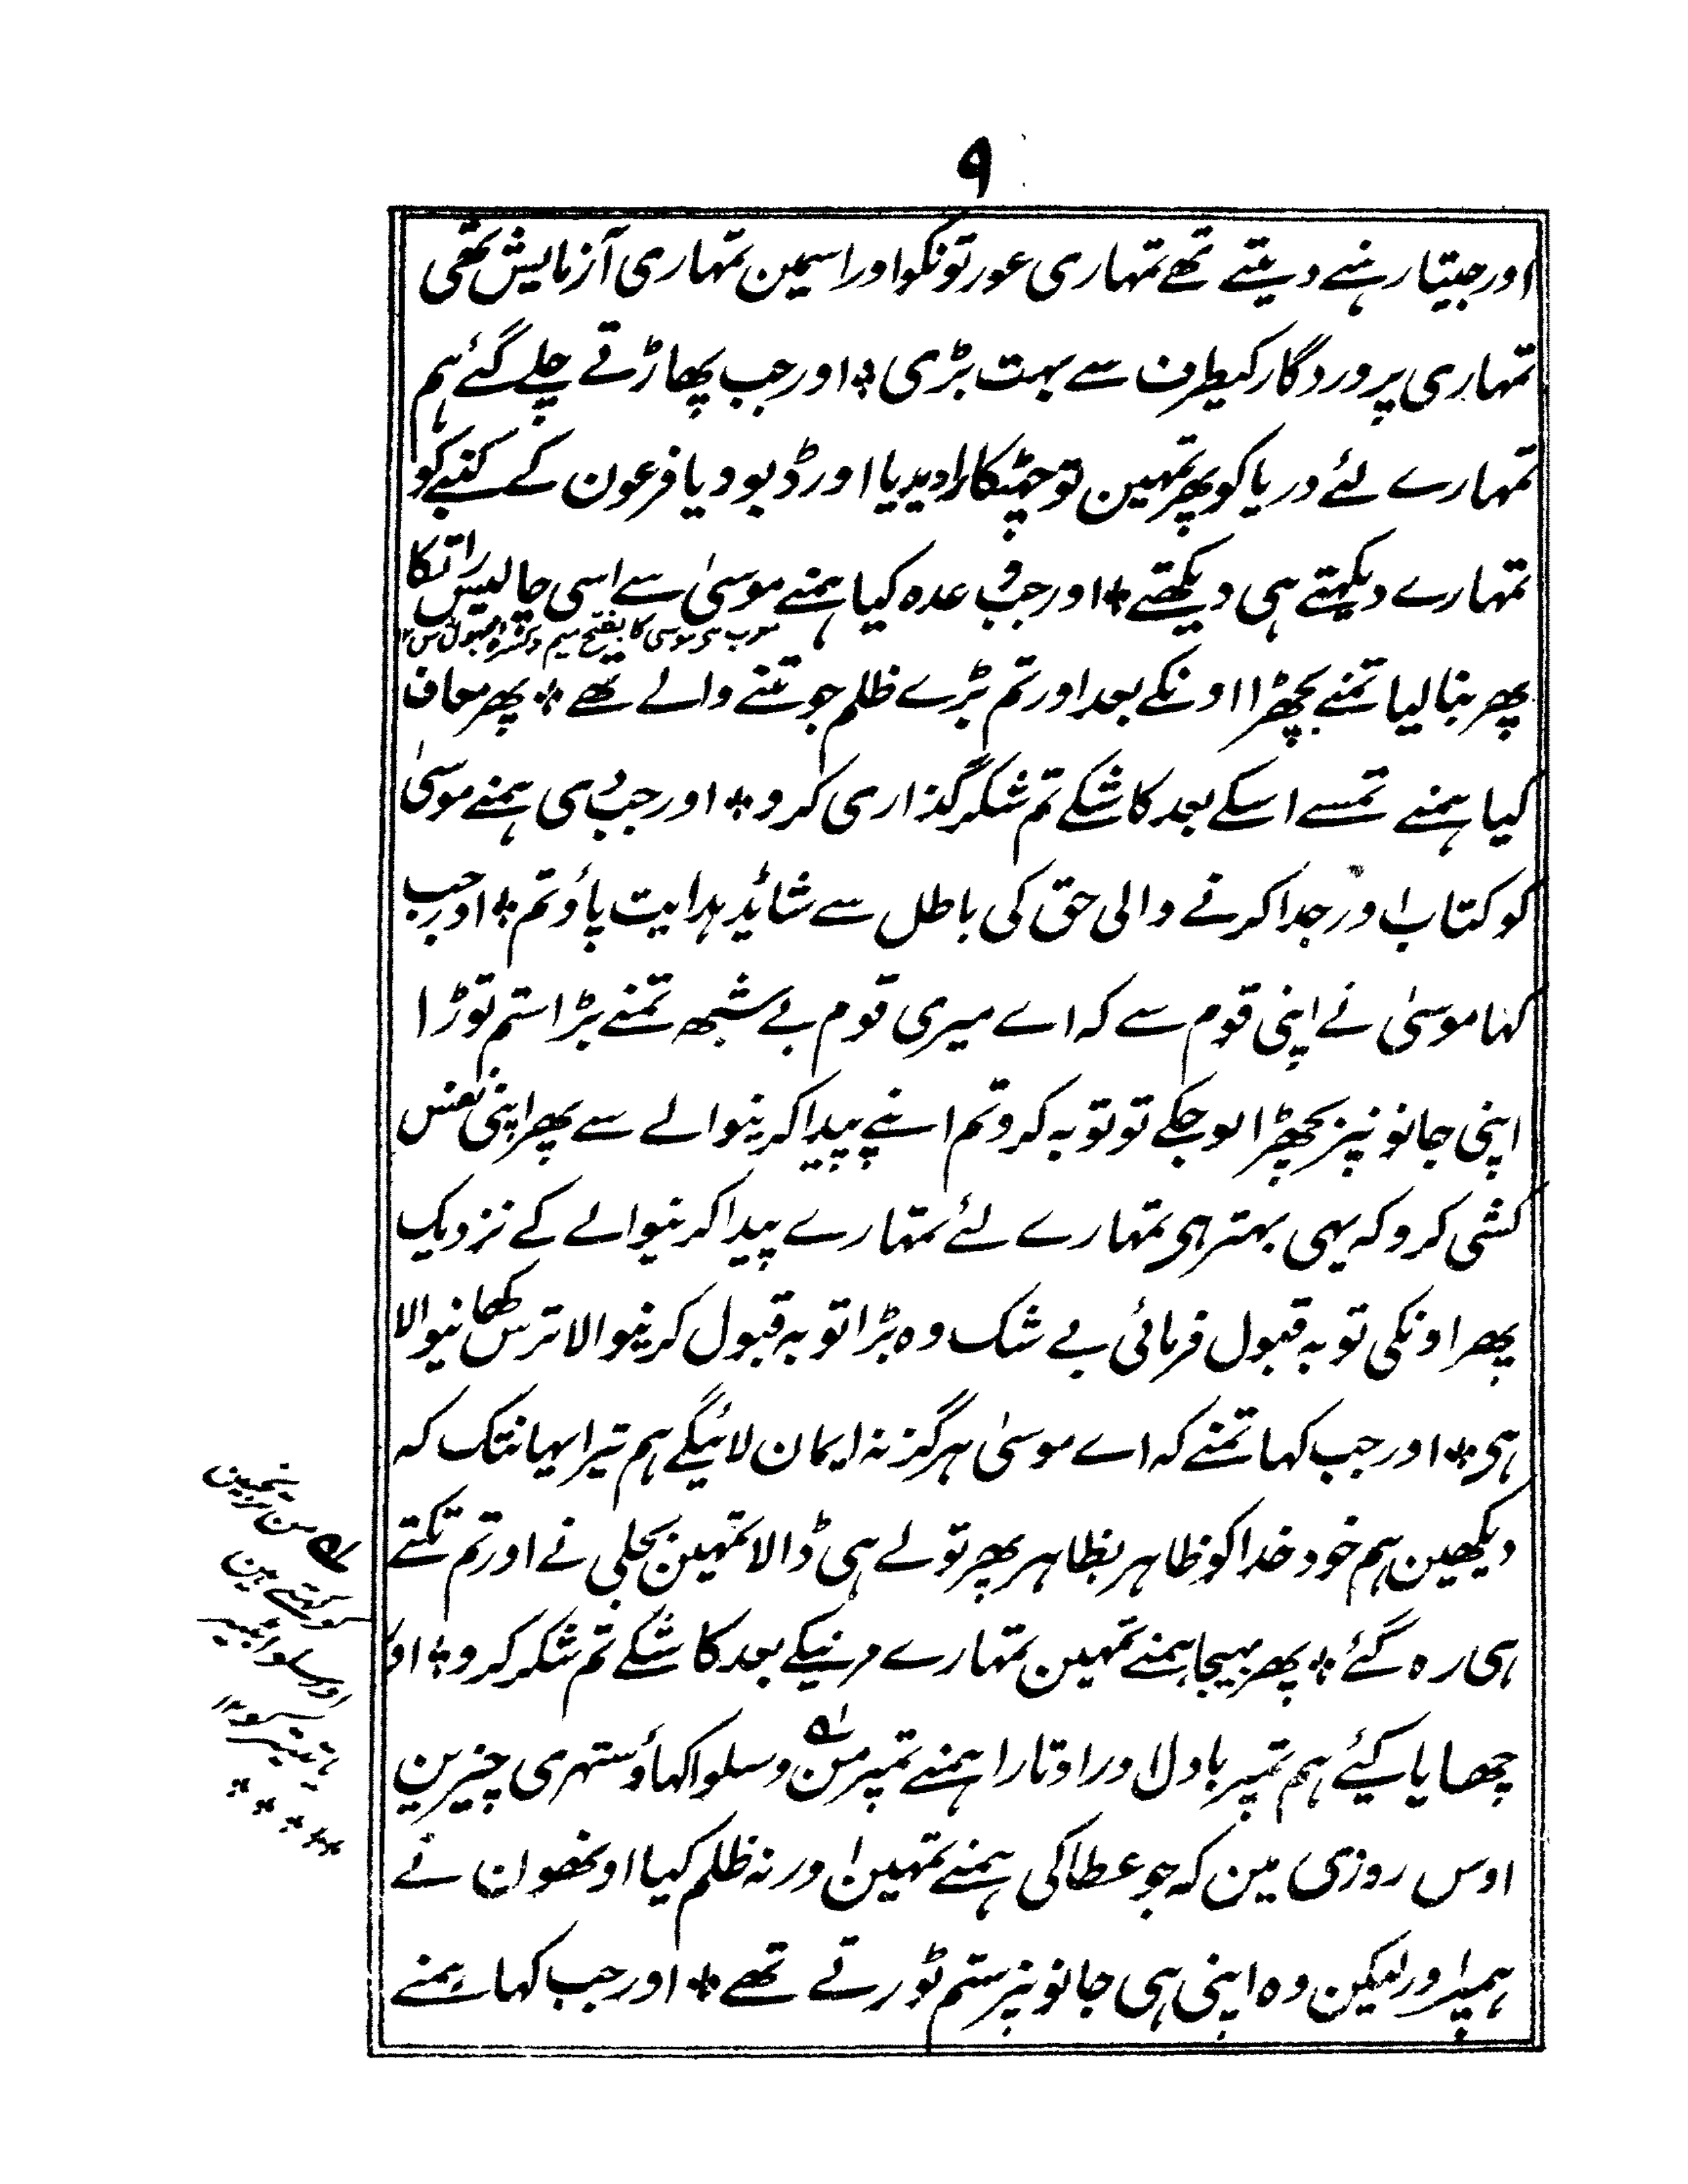 ۹
اور جیتا رہنے دیتے تھے تمہاری عورتونکو اور اسمین تمہاری آزمایش تھی
تمہاری پروردگار کیطرف سے بہت بڑی * اور جب پھاڑتے چلے گئے ہم
تمہارے لئے دریا کو پھر تمہین تو چھٹکارا دیدیا اور ڈبو دیا فرعون کے کنبے کو
تمہارے دیکھتے ہی دیکھتے * اور جب وعدہ کیا ہمنے موسیٰ سے اسی چالیس راتکا
پھر بنا لیا تمنے بچھڑا اونکے بعد اور تم بڑے ظلم جوتنے والے تھے * پھر معاف
کیا ہمنے تمسے اسکے بعد کاشکے تم شکر گذاری کرو * اور جب دی ہمنے موسیٰ
کو کتاب اور جدا کرنے والی حق کی باطل سے شائد ہدایت پاؤ تم * اور جب
کہا موسیٰ نے اپنی قوم سے کہ اے میری قوم بے شبھہ تمنے بڑا ستم توڑا
اپنی جانونپر بچھڑا پوجکے تو توبہ کرو تم اپنے پیدا کرینوالے سے پھر اپنی نفس
کشی کرو کہ یہی بہتر ہی تمہارے لئے تمہارے پیدا کرنیوالے کے نزدیک
پھر اونکی توبہ قبول فرمائی بے شک وہ بڑا توبہ قبول کرینوالا ترس کھانیوالا
ہی * اور جب کہا تمنے کہ اے موسیٰ ہرگز نہ ایمان لائینگے ہم تیرا یہانتک کہ
دیکھین ہم خود خدا کو ظاہر بظاہر پھر تو لے ہی ڈالا تمہین بجلی نے اور تم تکتے
ہی رہ گئے * پھر بھیجا ہمنے تمہین تمہارے مرنیکے بعد کاشکے تم شکر کرو * اور
چھایا کیئے ہم تمپر بادل اور اوتارا ہمنے تمپر من و سلوا کہاؤ ستھری چیزین
اوس روزی مین کہ جو عطا کی ہمنے تمہین اور نہ ظلم کیا اونھون نے
ہمپر اور لیکن وہ اپنی ہی جانونپر ستم توڑتے تھے * اور جب کہا ہمنے
من
کو کہتے ہین
اور سلوا